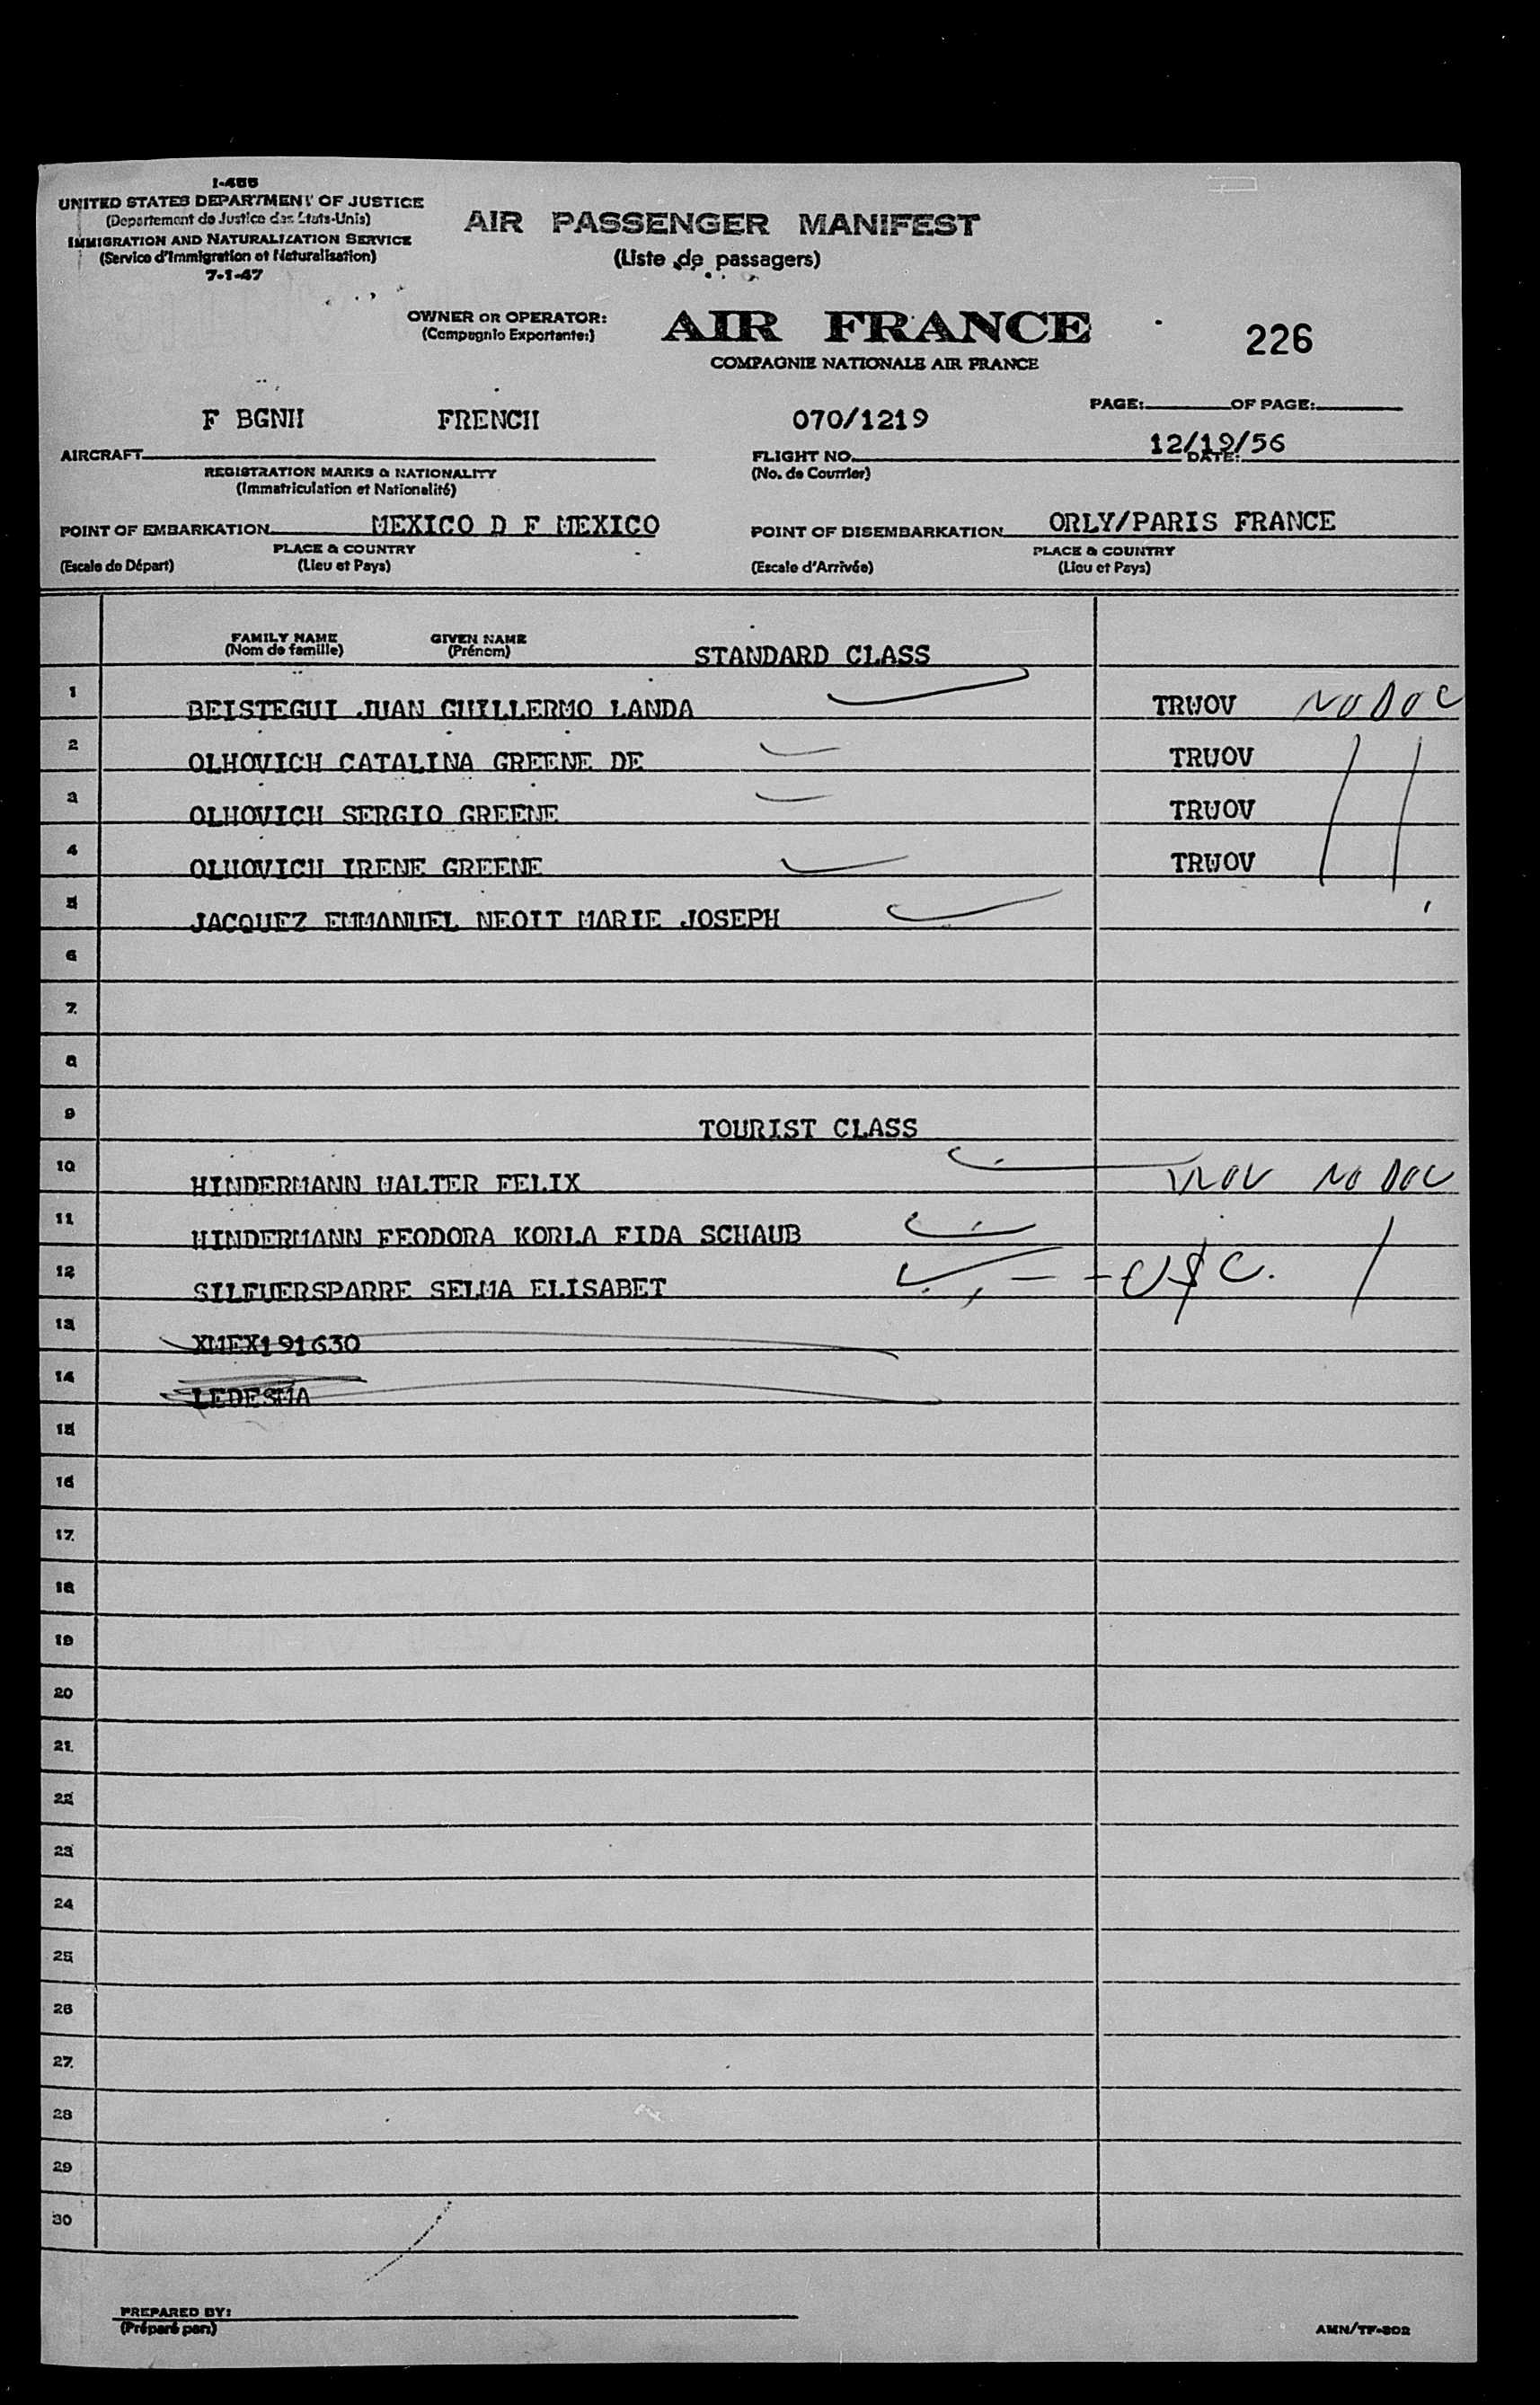 I-455
UNITED STATES DEPARTMENT OF JUSTICE
(Departement de Justice des Etats-Unis)
IMMIGRATION AND NATURALIZATION SERVICE
(Service d'Immigration et Naturalisation)
7-1-47
AIR PASSENGER MANIFEST
(Liste de passagers)
OWNER OR OPERATOR: AIR FRANCE 226
(Compagnie Exportante:)
COMPAGNIE NATIONALE AIR FRANCE
PAGE: OF PAGE:
F BGNH FRENCH 070/1219
12/19/56
AIRCRAFT FLIGHT NO. DATE:
REGISTRATION MARKS & NATIONALITY (No. de Courrier)
(Immatriculation et Nationalité)
POINT OF EMBARKATION MEXICO D F MEXICO POINT OF DISEMBARKATION ORLY/PARIS FRANCE
PLACE & COUNTRY PLACE & COUNTRY
(Escale de Départ) (Lieu et Pays) (Escale d'Arrivée) (Lieu et Pays)
FAMILY NAME GIVEN NAME
(Nom de famille) (Prénom) STANDARD CLASS
1 BEISTEGUI JUAN GUILLERMO LANDA TRWOV NO DOC
2 OLHOVICH CATALINA GREENE DE TRWOV
3 OLHOVICH SERGIO GREENE TRWOV
4 OLHOVICH IRENE GREENE TRWOV
5 JACQUEZ EMMANUEL NEOIT MARIE JOSEPH
6
7
8
9 TOURIST CLASS
10 HINDERMANN WALTER FELIX NO DOC
11 HINDERMANN FEODORA KORLA FIDA SCHAUB
12 SILFVERSPARRE SELMA ELISABET USC.
13 XMEX191630
14 LEDESMA
15
16
17
18
19
20
21
22
23
24
25
26
27
28
29
30
PREPARED BY:
(Préparé par:) AMN/TF-802